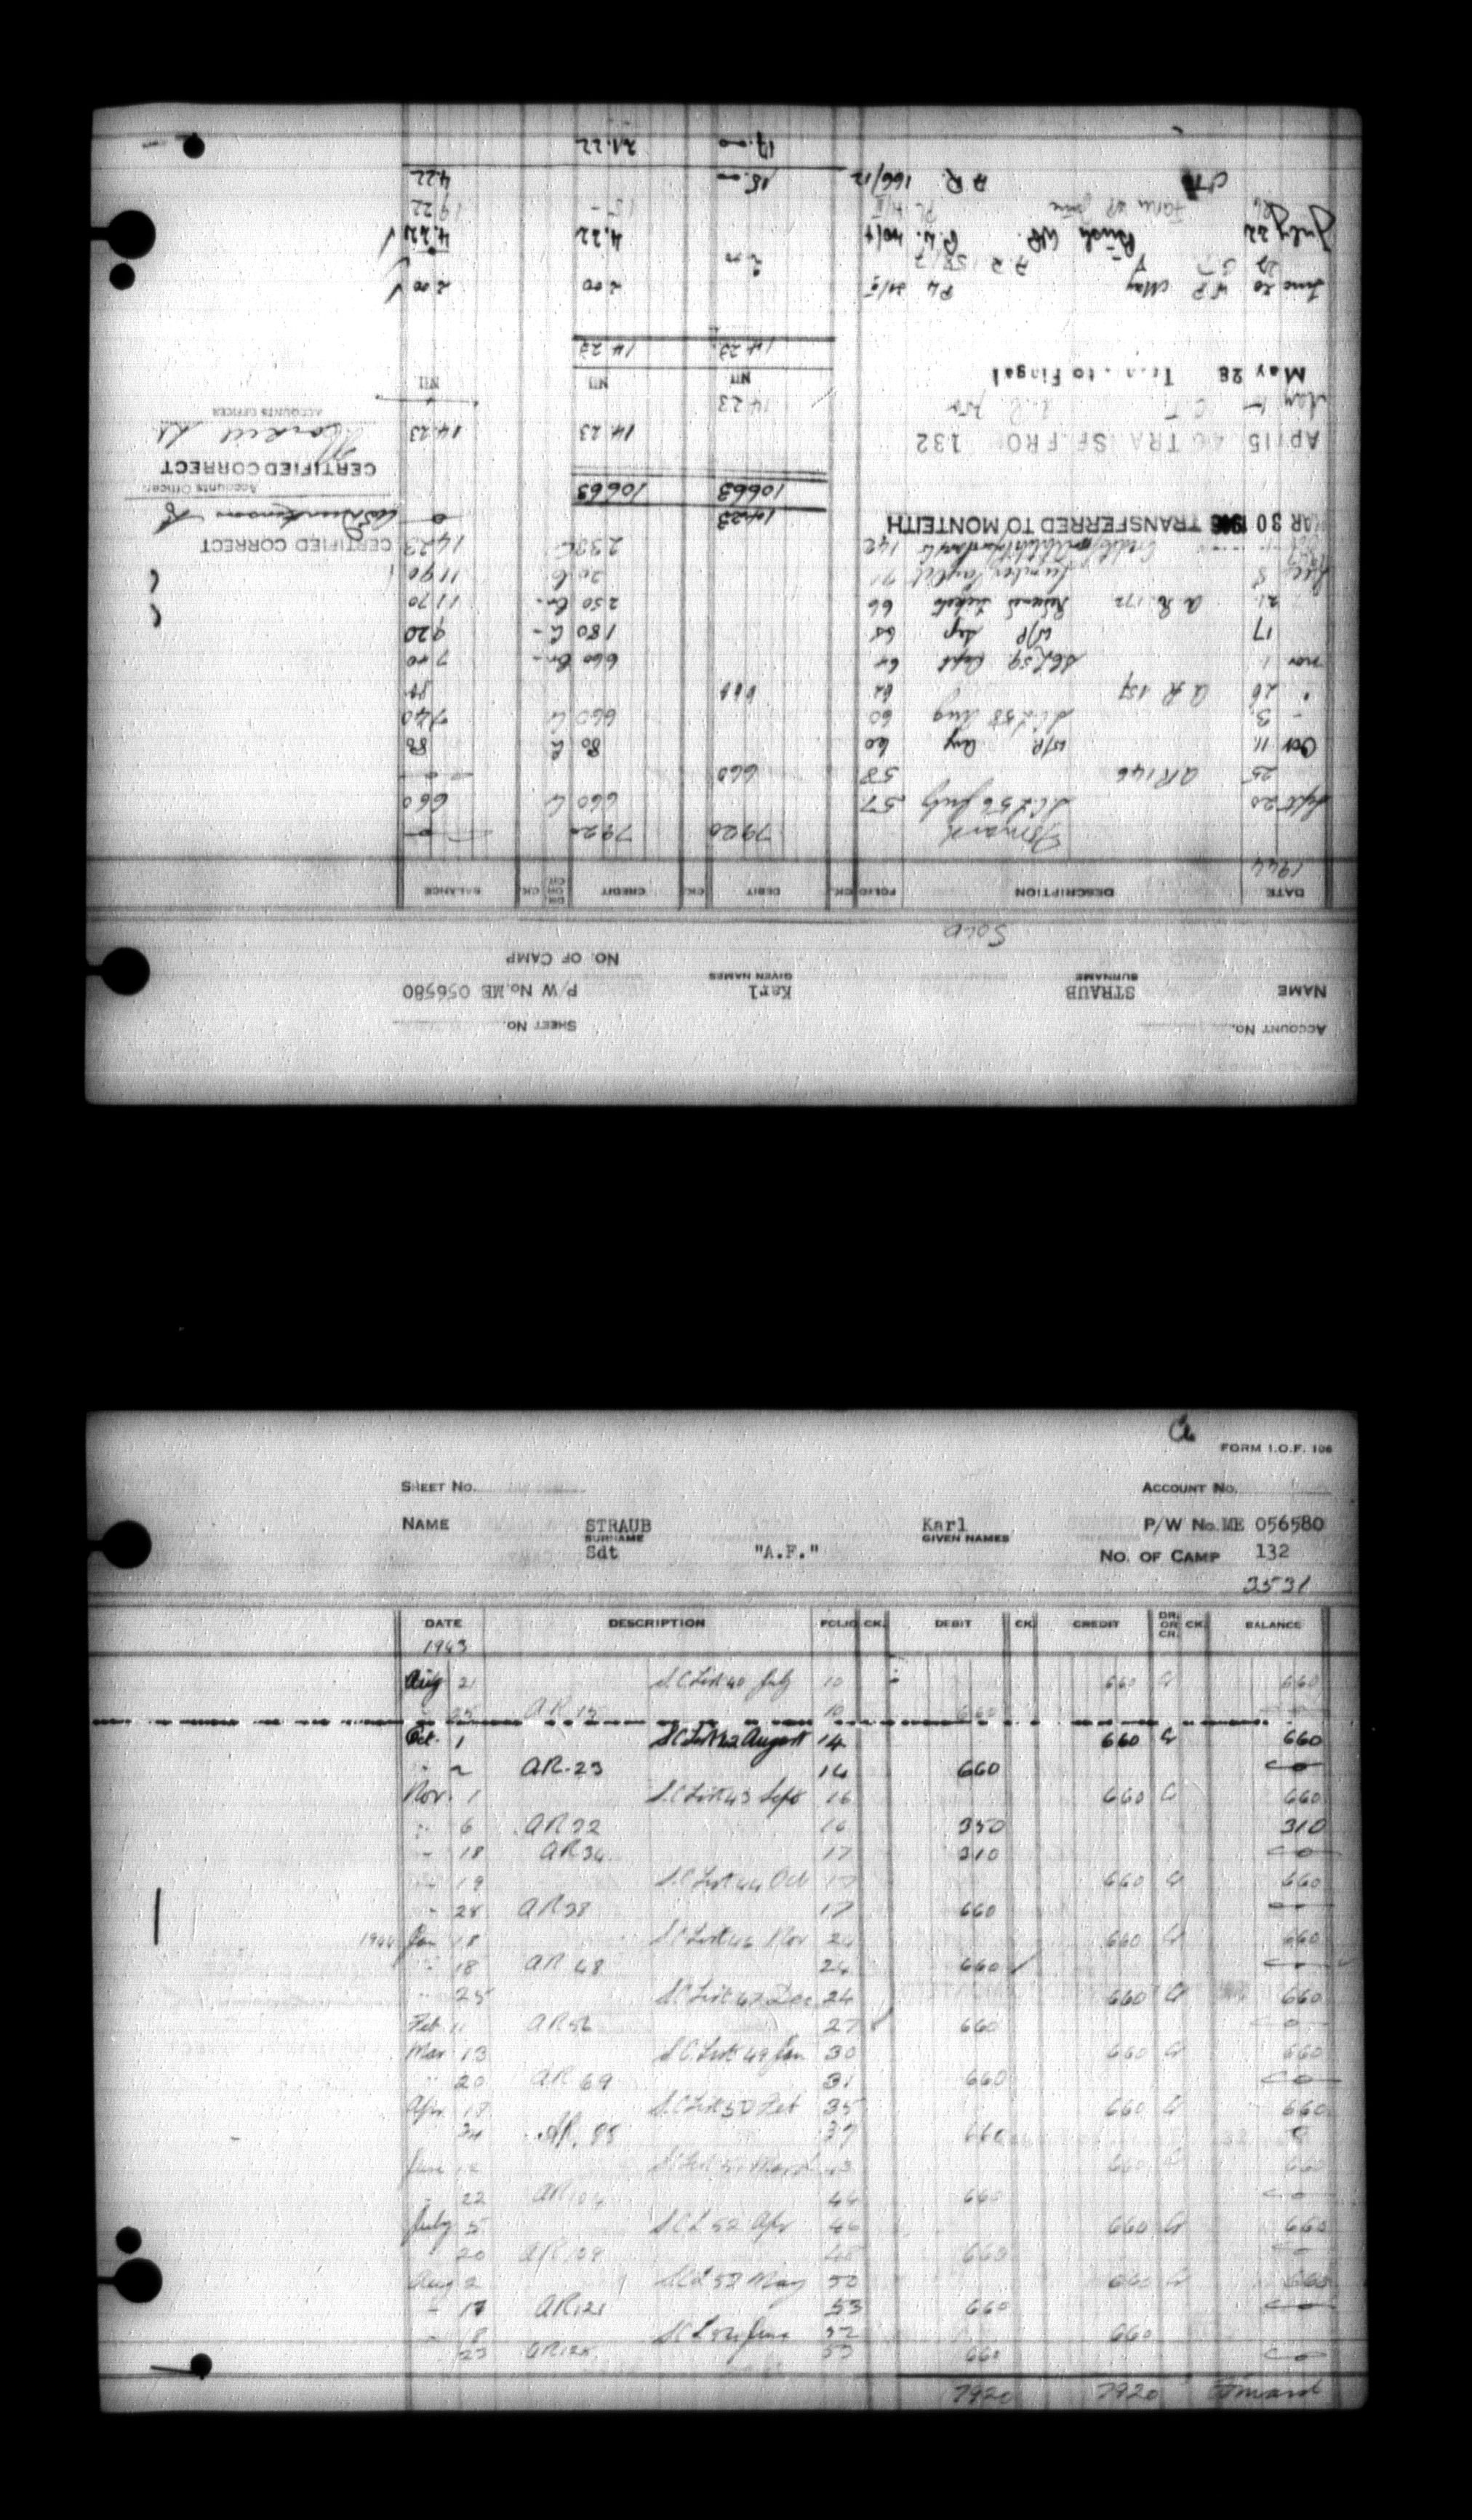 ACCOUNT No. SHEET No.
NAME STRAUB Karl P/W No. ME 056580
SURNAME GIVEN NAMES
NO. OF CAMP
SOLD
DATE DESCRIPTION FOLIO CK. DEBIT CK. CREDIT DR. OR CR. CK. BALANCE
1944
Forward 7920 7920 —o—
Sept 20 SCL 56 July 57 660 Cr 660
25 AR 146 58 660 —o—
Oct 11 W/P Aug 60 80 Cr 80
" 3 SCL 58 Aug 60 660 Cr 740
" 26 AR 159 62
Nov 1 SCL 59 Sept 64 660 Cr 740
17 W/P Sep 65 180 Cr 920
21 AR 172 66 250 Cr 1170
8 Lumber 71 20 Cr 1190
142 233 Cr 1423
CERTIFIED CORRECT
MAR 30 1946 TRANSFERRED TO MONTEITH 1423 —o—
Accounts Officer
10663 10663
CERTIFIED CORRECT
APR 15 46 TRANSF. FROM 132 14 23 14.23
ACCOUNTS OFFICER
May 14 23
May 28 Tran. to Fingal Nil Nil Nil
14 23 14 23
June 20 WP May P4 2 00 2 00
27 CT AR 158/7 2 00
July 22 Bush WP. 4.22 4.22
Farm WP June 15 - 19 22
CT AR 166/12 15.00 4.22
17.00 21.22
FORM I.O.F. 106
SHEET No. ACCOUNT No.
NAME STRAUB Karl P/W No. ME 056580
SURNAME GIVEN NAMES
Sdt "A.F." NO. OF CAMP 132
3531
DATE DESCRIPTION FOLIO CK. DEBIT CK. CREDIT DR. OR CR. CK. BALANCE
1943
Aug 21 S.C List 40 July 10 660 Cr 660
25 AR 15 10 660
Oct. 1 S.C List 42 August 14 660 Cr 660
" 2 AR-23 14 660 —o—
Nov. 1 S.C List 43 Sept 16 660 Cr 660
" 6 AR 32 16 350 310
" 18 AR 34 17 310 —o—
" 19 S.C List 44 Oct 17 660 Cr 660
" 28 AR 38 17 660 —o—
1944 Jan 18 S.C List 46 Nov 24 660 Cr 660
" 18 AR 48 24 660 —o—
" 25 S.C List 47 Dec 24 660 Cr 660
Feb 11 AR 56 27 660 —o—
Mar 13 S.C. List 49 Jan 30 660 Cr 660
" 20 AR 69 31 660 —o—
Apr 18 S.C List 50 Feb 35 660 Cr 660
24 AR. 88 37 660 0
June 12 S.C List 51 March 43 660 Cr 660
22 AR 104 44 660 —o—
July 5 S.C L 52 Apr 46 660 Cr 660
20 AR 109 48 660 —o—
Aug 2 SCL 53 May 50 660 Cr 660
" 17 AR 121 53 660 —o—
" 8 SCL 54 June 52 660
" 23 AR 125 53 660 —o—
7920 7920 Forward